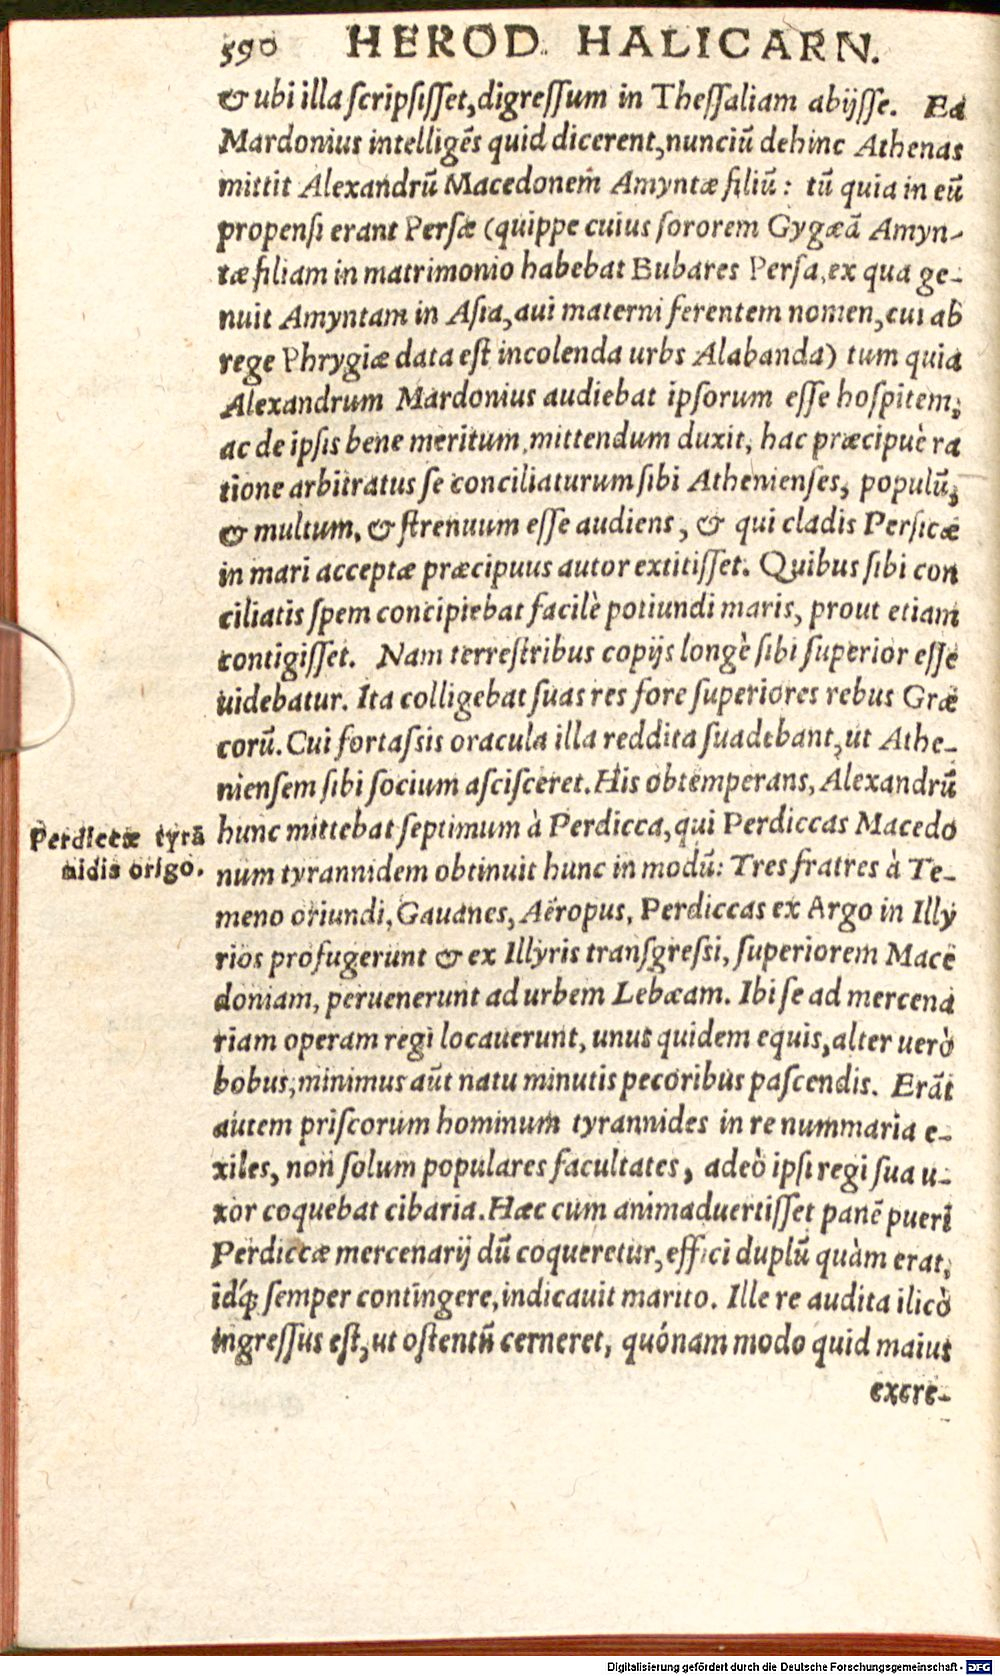 590 HEROD. HALICARN.
& ubi illa ſcripſiſſet, digreſſum in Theſſaliam abijſſe. Ea
Mardonius intelligẽs quid dicerent, nunciũ dehinc Athenas
mittit Alexandrũ Macedonem̃ Amyntæ filiũ: tũ quia in eũ
propenſi erant Perſæ (quippe cuius ſororem Gygæã Amyn-
tæ filiam in matrimonio habebat Bubares Perſa, ex qua ge-
nuit Amyntam in Aſia, aui materni ferentem nomen, cui ab
rege Phrygiæ data eſt incolenda urbs Alabanda) tum quia
Alexandrum Mardonius audiebat ipſorum eſſe hoſpitem,
ac de ipſis bene meritum, mittendum duxit, hac præcipuè ra
tione arbitratus ſe conciliaturum ſibi Athenienſes, populũ,
& multum, & ſtrenuum eſſe audiens, & qui cladis Perſicæ
in mari acceptæ præcipuus autor extitiſſet. Quibus ſibi con
ciliatis ſpem concipiebat facilè potiundi maris, prout etiam
contigiſſet. Nam terreſtribus copijs longè ſibi ſuperior eſſe
uidebatur. Ita colligebat ſuas res fore ſuperiores rebus Græ
corũ. Cui fortaſsis oracula illa reddita ſuadebant, ut Athe-
nienſem ſibi ſocium aſciſceret. His obtemperans, Alexandrũ
hunc mittebat ſeptimum à Perdicca, qui Perdiccas Macedo
num tyrannidem obtinuit hunc in modũ: Tres fratres à Te-
meno oriundi, Gauanes, Aëropus, Perdiccas ex Argo in Illy
rios profugerunt & ex Illyris tranſgreſsi, ſuperiorem Mace
doniam, peruenerunt ad urbem Lebæam. Ibi ſe ad mercena
riam operam regi locauerunt, unus quidem equis, alter uerò
bobus, minimus aũt natu minutis pecoribus paſcendis. Erãt
autem priſcorum hominum tyrannides in re nummaria e-
xiles, non ſolum populares facultates, adeò ipſi regi ſua u-
xor coquebat cibaria. Hæc cum animaduertiſſet panẽ pueri
Perdiccæ mercenarij dũ coqueretur, effici duplũ quàm erat,
idq́; ſemper contingere, indicauit marito. Ille re audita ilicò
ingreſſus eſt, ut oſtentũ cerneret, quónam modo quid maius
excre-
Perdiccæ tyrã
nidis origo.
Digitalisierung gefördert durch die Deutsche Forschungsgemeinschaft - DFG